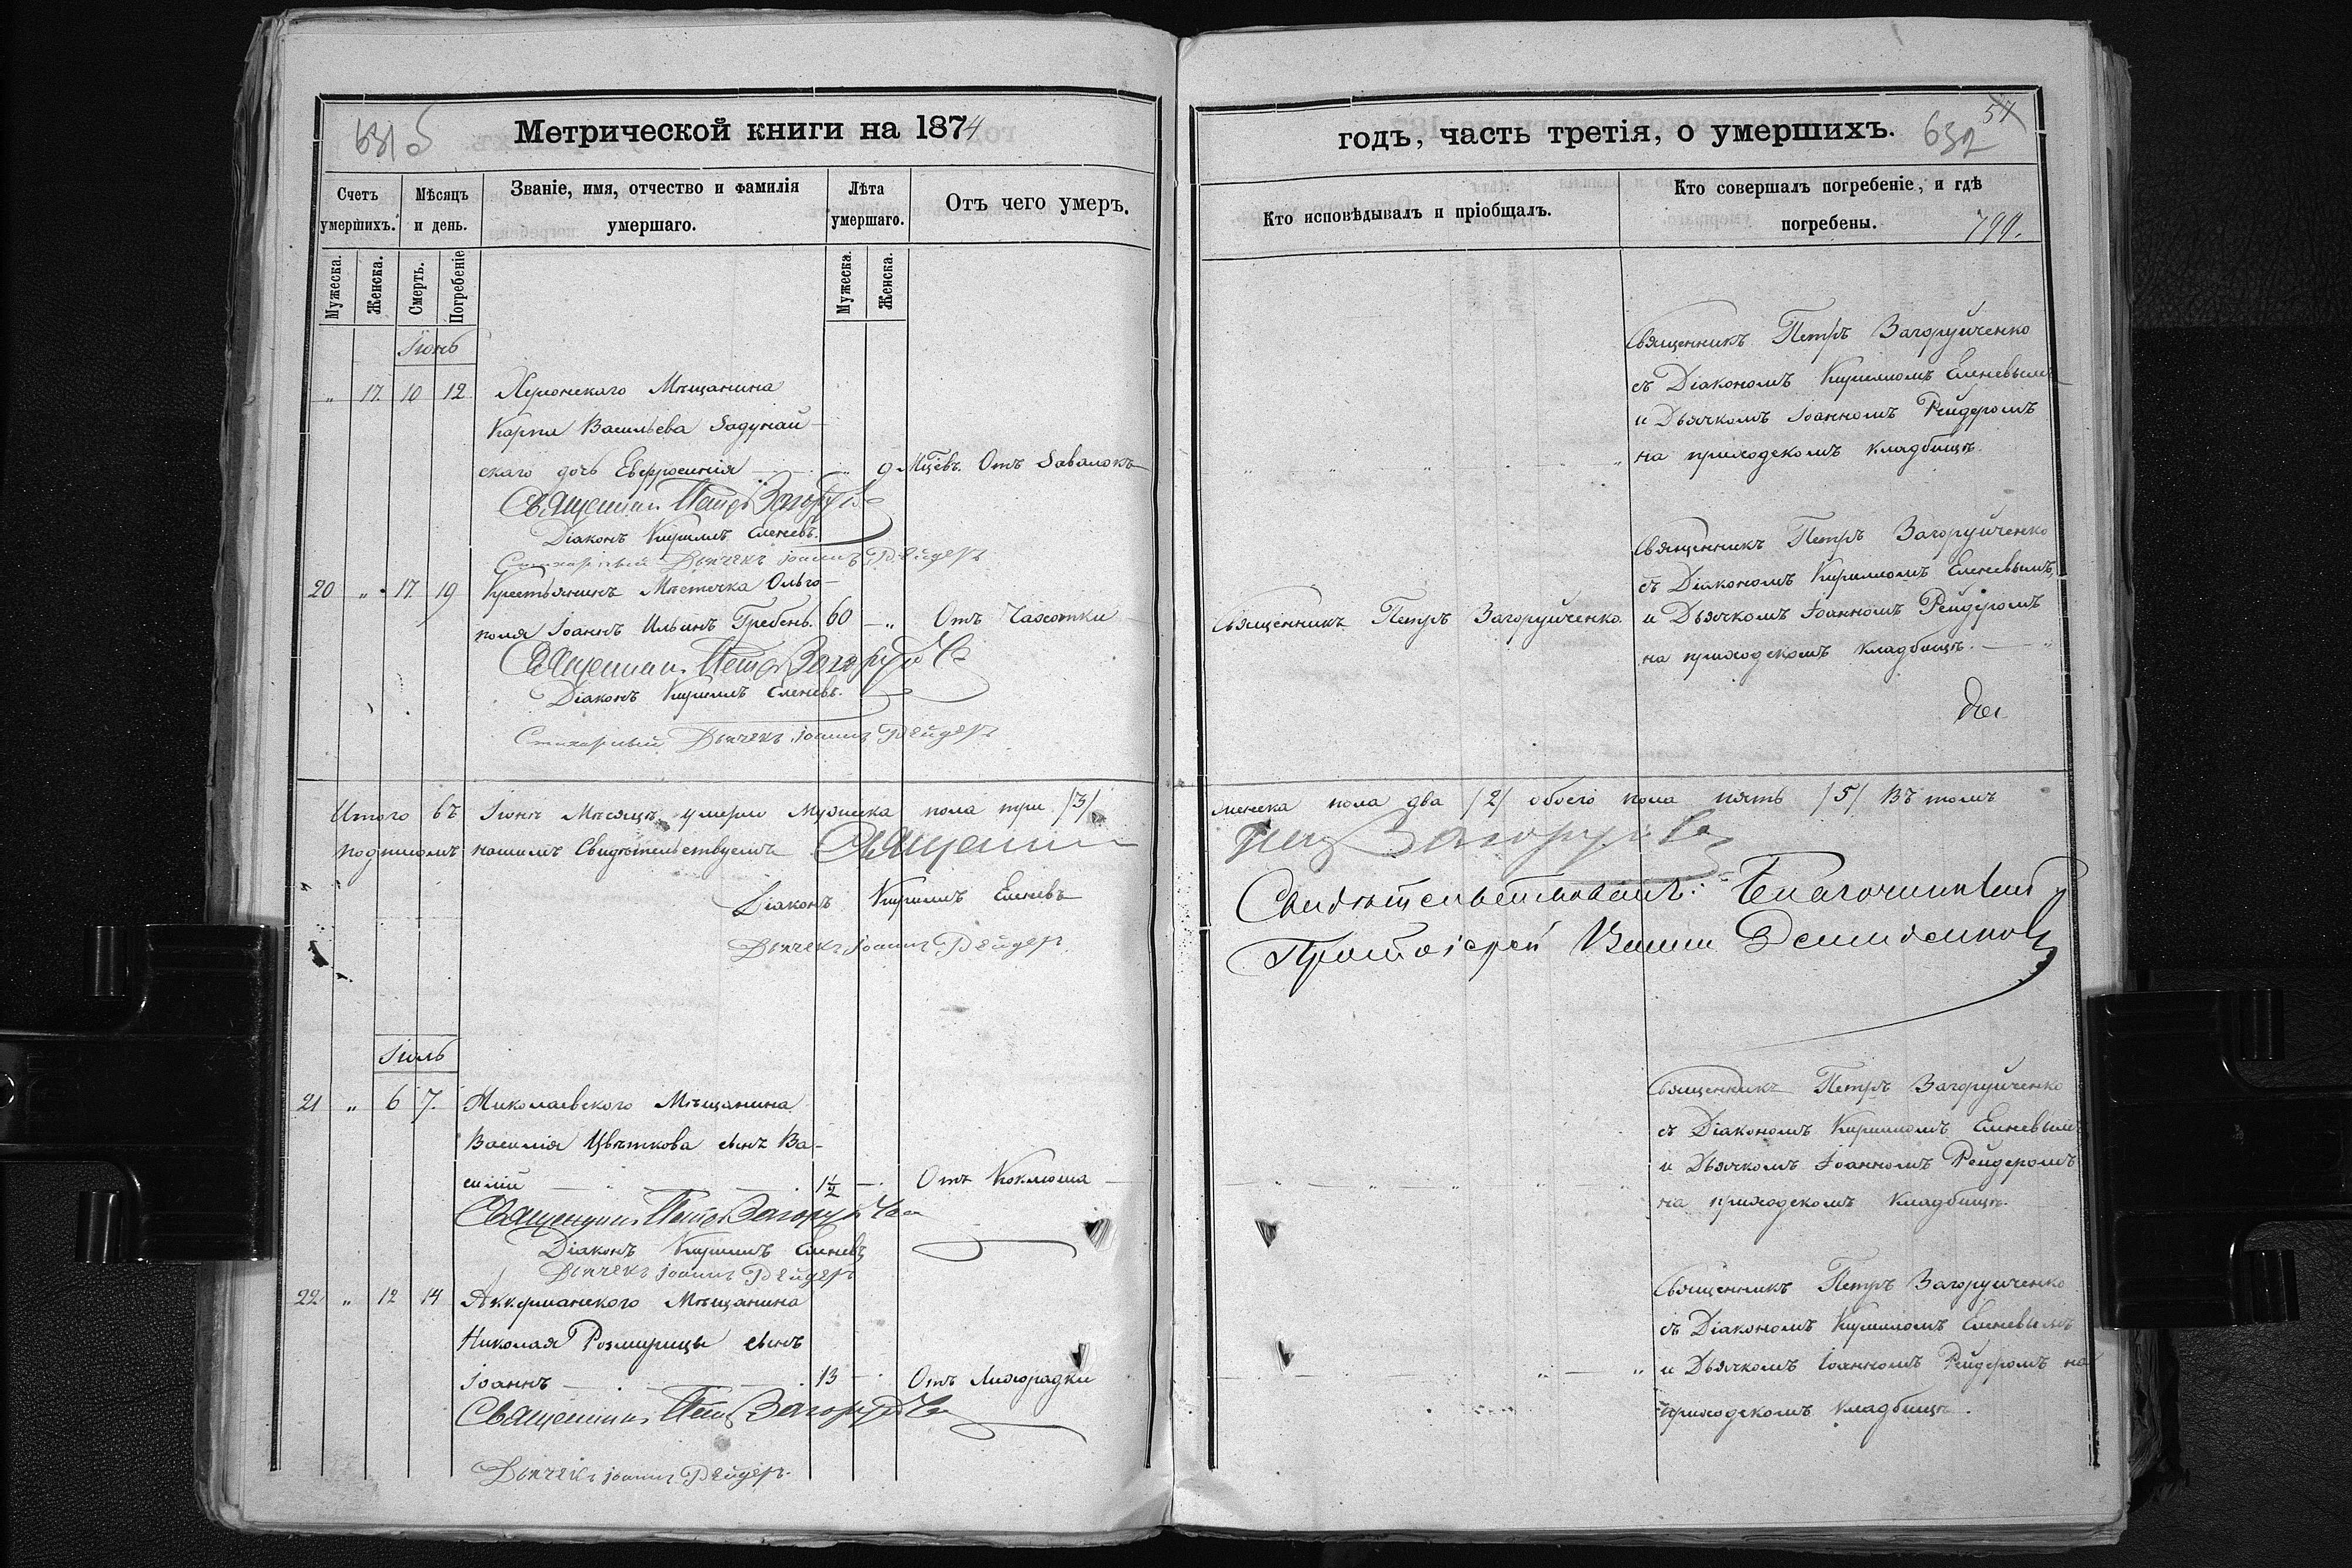 631
Метрической книги на 1874
Счетъ умершихъ.
Мѣсяцъ и день.
Званіе, имя, отчество и фамилія умершаго.
Лѣта умершаго.
Отъ чего умеръ.
Мужеска.
Женска.
Смерть.
Погребеніе
Мужеска.
Женска.
Іюнь
„ 17. 10 12 Херсонскаго Мѣщанина
Карпа Васильева Задунай-
скаго дочь Евфросинія — „ 9 мцевъ. Отъ Завалокъ
Священникъ Петръ Загоруйч
Діаконъ Кириллъ Еленевъ.
Стихарный Дьячекъ Іоаннъ Рейдеръ
20 „ 17 19 Крестьянинъ Мѣстечка Ольго-
поля Іоаннъ Ильинъ Гребень. 60 — „ Отъ Чахотки
Священникъ Петръ Загоруйч
Діаконъ Кириллъ Еленевъ.
Стихарный Дьячекъ Іоаннъ Рейдеръ
Итого въ Іюнѣ Мѣсяцѣ умерло Мужеска пола три /3/
подписомъ нашимъ Свидѣтельствуемъ Священникъ
Діаконъ Кириллъ Еленевъ
Дьячекъ Іоаннъ Рейдеръ
Іюль
21 „ 6 7. Николаевского Мѣщанина
Василія Цвѣткова сынъ Ва-
силій — 1½ — Отъ Коклюша
Священникъ Петръ Загоруйч
Діаконъ Кириллъ Еленевъ
Дьячекъ Іоаннъ Рейдеръ
22 „ 12 14 Аккерманского Мѣщанина
Николая Розмирицы сынъ
Іоаннъ — 13 — Отъ Лихорадки
Священникъ Петръ Загоруйч
Дьячекъ Іоаннъ Рейдеръ.
годъ, часть третія, о умершихъ.
632
54
Кто исповѣдывалъ и пріобщалъ.
Кто совершалъ погребеніе, и гдѣ погребены.
799.
Священникъ Петръ Загоруйченко
съ Діакономъ Кирилломъ Еленевымъ
и Дьячкомъ Іоанномъ Рейдеромъ
на приходскомъ кладбищѣ.
Священникъ Петръ Загоруйченко
съ Діакономъ Кирилломъ Еленевымъ,
Священникъ Петръ Загоруйченко. и Дьячкомъ Іоанномъ Рейдеромъ
на приходскомъ кладбищѣ.
женска пола два /2/ обоего пола пять /5/ Въ томъ
Петръ Загоруйч
Свидѣтельствовалъ: Благочинный
Протоіерей
Священникъ Петръ Загоруйченко
съ Діакономъ Кирилломъ Еленевымъ
и Дьячкомъ Іоанномъ Рейдеромъ
на приходскомъ кладбищѣ.
Священникъ Петръ Загоруйченко
съ Діакономъ Кирилломъ Еленевымъ
и Дьячкомъ Іоанномъ Рейдеромъ на
приходскомъ кладбищѣ.